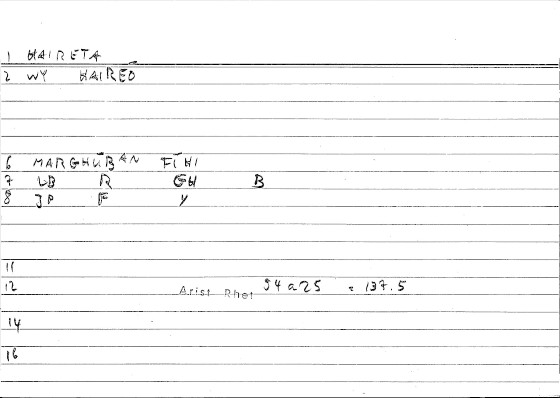 1 HAIRETA
2 WY HAIREŌ
6 MARGHŪBAN FĪHI
7 LB R GH B
8 JP F Y
11
12 Arist Rhet 94a25 = 137.5
14
16